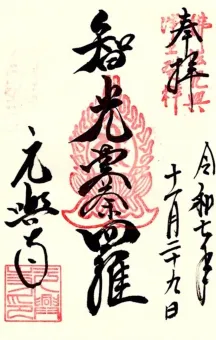 奉拝
令和七年
十一月二十九日
智光曼荼羅
元興寺